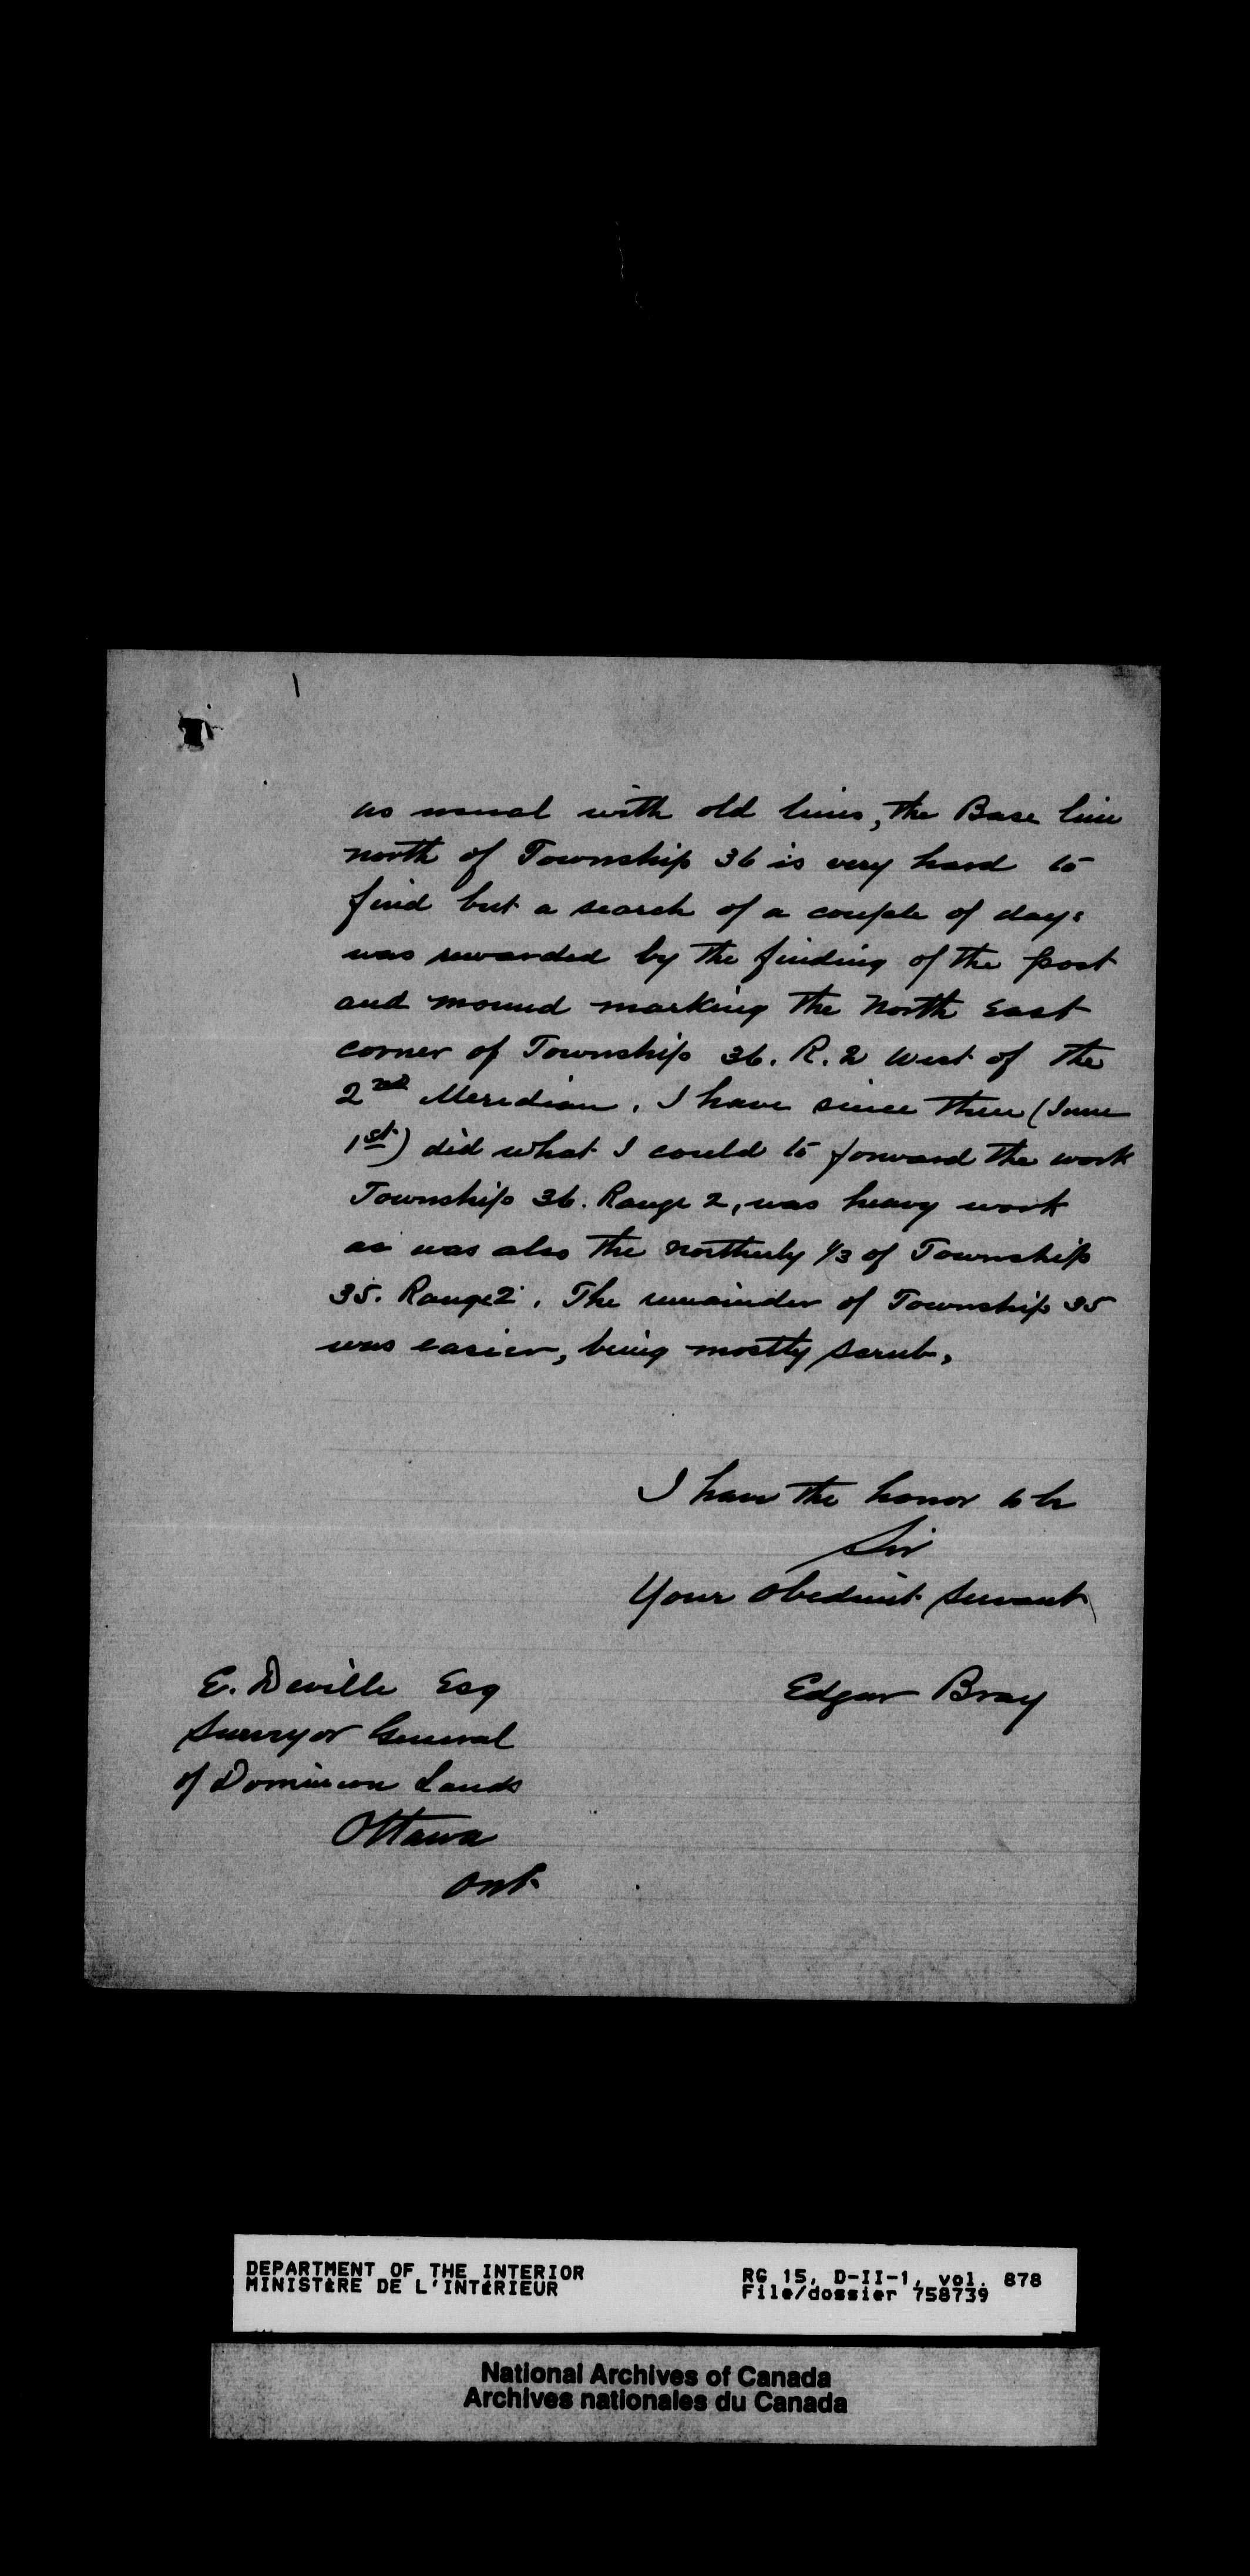 as usual with old lines, the Base line
north of Township 36 is very hard to
find but a search of a couple of days
was rewarded by the finding of the post
and mound marking the North East
corner of Township 36. R. 2 West of the
2nd Meridian. I have since then (June
1st) did what I could to forward the work
Township 36. Range 2, was heavy work
as was also the northerly 1/3 of Township
35. Range 2. The remainder of Township 35
was easier, being mostly scrub.
I have the honor to be
Sir
Your obedient servant
Edgar Bray
E. Deville Esq
Surveyor General
of Dominion Lands
Ottawa
Ont
DEPARTMENT OF THE INTERIOR
MINISTÈRE DE L'INTÉRIEUR
RG 15, D-II-1, vol. 878
File/dossier 758739
National Archives of Canada
Archives nationales du Canada